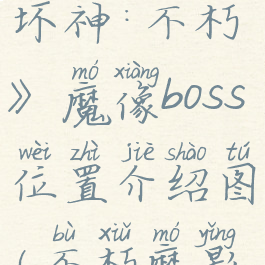 坏神:不朽
mó xiàng
》魔像boss
wèi zhì jiè shào tú
位置介绍图
bù xiǔ mó yǐng
(不朽魔影